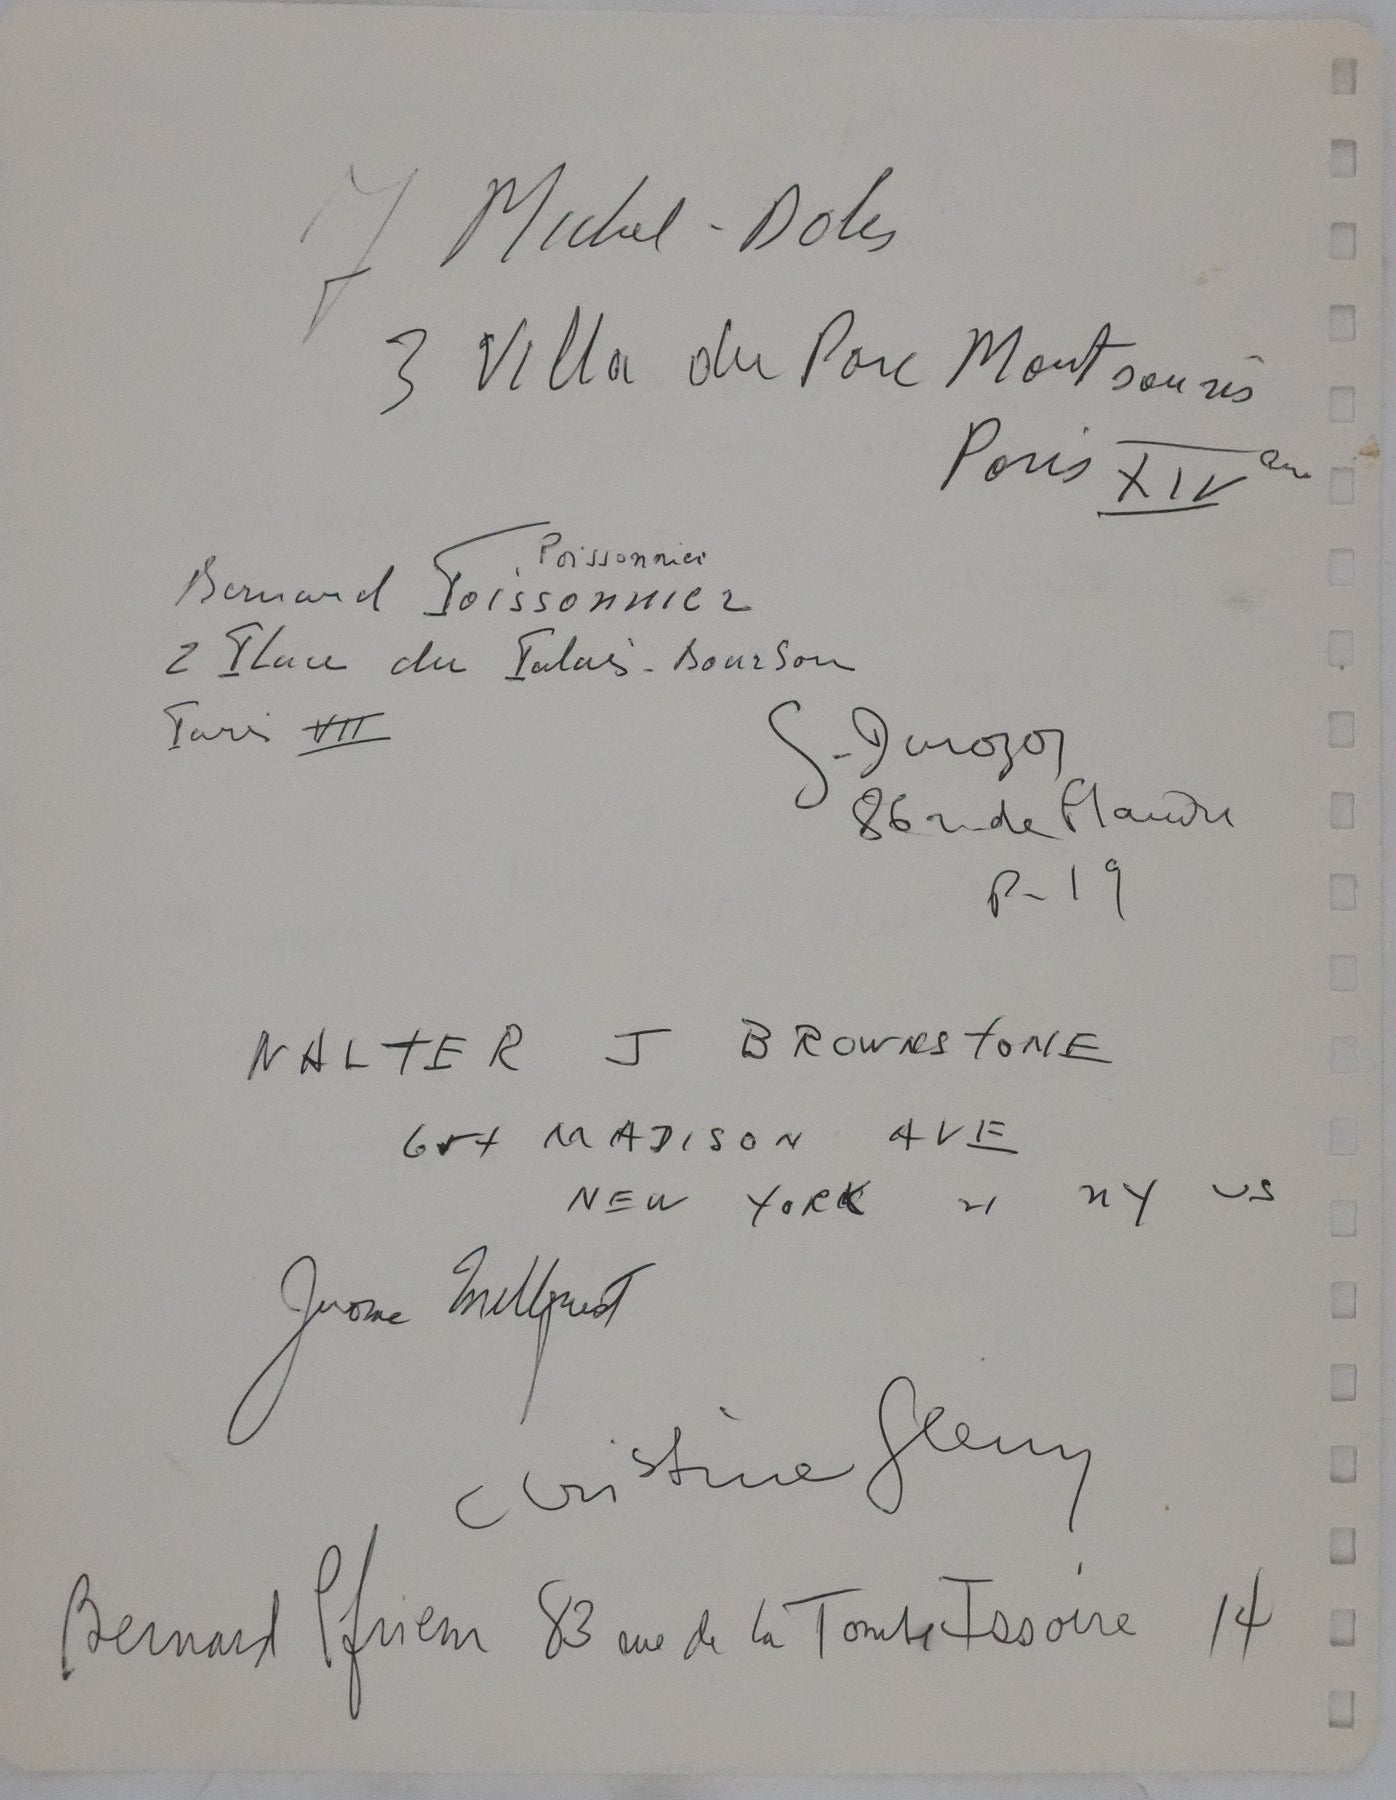 Michel - Doles
3 Villa du Parc Montsouris
Paris XIV eme
Poissonnier
Bernard Poissonnier
2 Place du Palais-Bourbon
Paris VII
G-Durozoi
86 rue de Flandre
P-19
WALTER J BROWNSTONE
MADISON AVE
NEW YORK 21 NY US
Jerome Mellquist
Christine Gleiny
Bernard Pfriem 83 rue de la Tombe Issoire 14